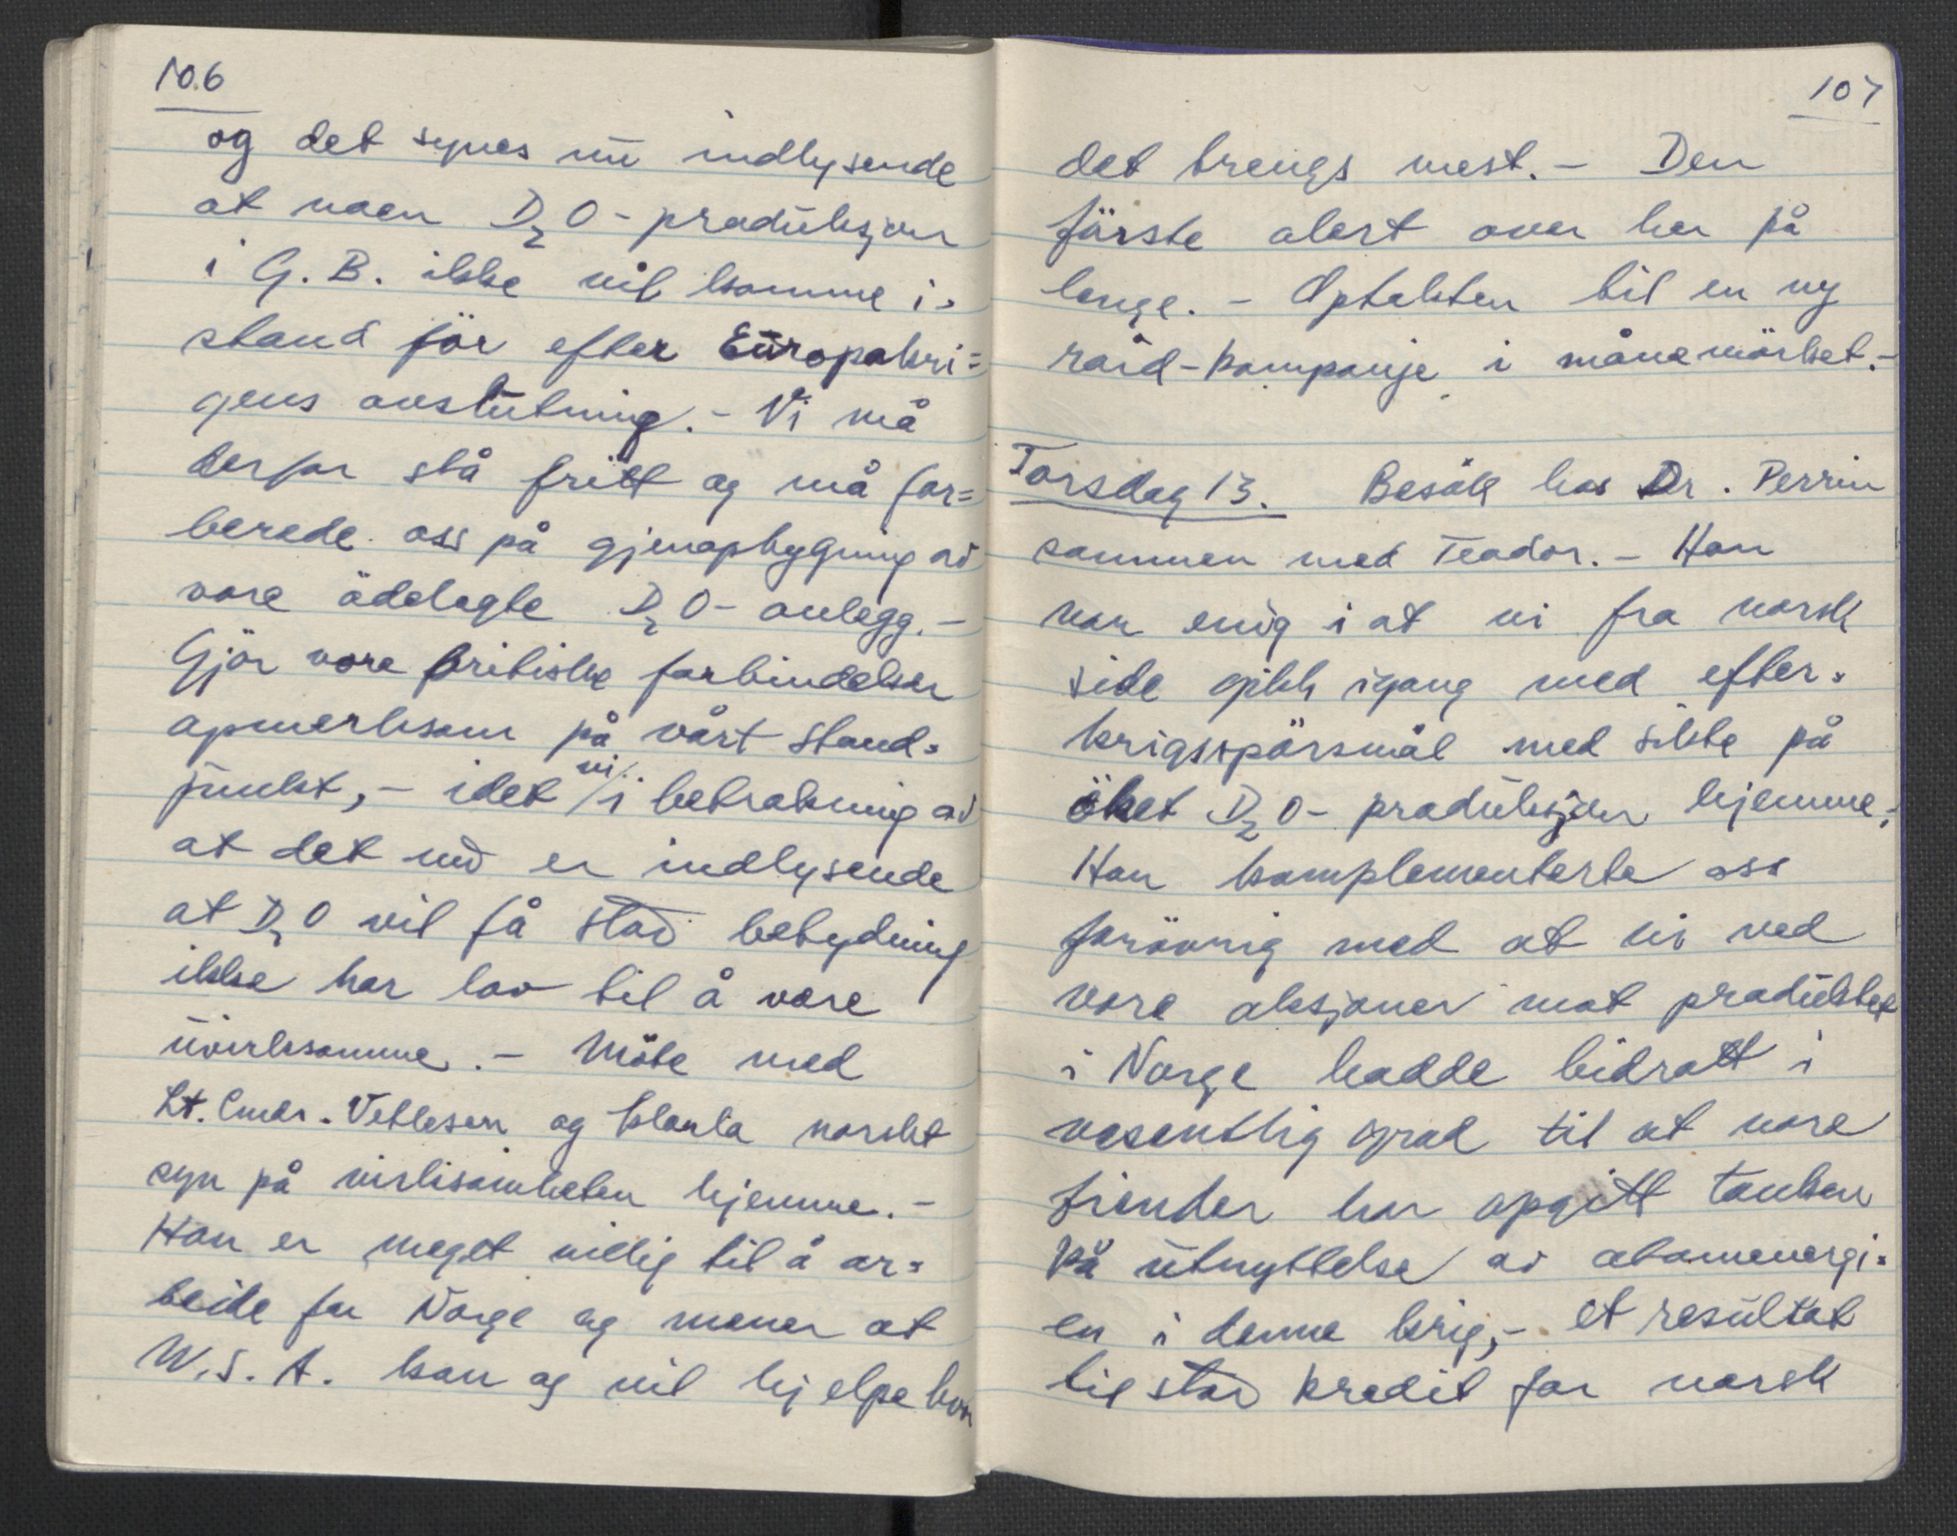 106
og det synes nu indlysende
at noen D2O-produksjon
i G.B. ikke vil komme i=
stand för efter Europakri=
gens avslutning. - Vi må
derfor stå fritt og må for=
berede oss på gjenopbygning av
våre ödelagte D2O-anlegg. -
Gjör våre britiske forbindelser
opmerksom på vårt stand=
punkt, - idet vi i betraktning av
at det nu er indlysende
at D2O vil få stor betydning
ikke har lov til å være
uvirksomme. - Möte med
Lt. Cmdr. Vetlesen og klarla norskt
syn på virksomheten hjemme. -
Han er meget villig til å ar=
beide for Norge og mener at
W.S.A. kan og vil hjelpe hvor
107
det trengs mest. - Den
förste alert over her på
lenge. - Optakten til en ny
raid-kampanje i månemörket. -
Torsdag 13. Besök hos Dr. Perrin
sammen med Teodor. - Han
var enig i at vi fra norsk
side gikk igang med efter=
krigsspörsmål med sikte på
öket D2O-produksjon hjemme. -
Han komplementerte oss
forövrig med at vi ved
våre aksjoner mot produktet
i Norge hadde bidratt i
vesentlig grad til at våre
fiender har opgitt tanken
på utnyttelse av atomenergi=
en i denne krig, - et resultat
til stor kredit for norsk